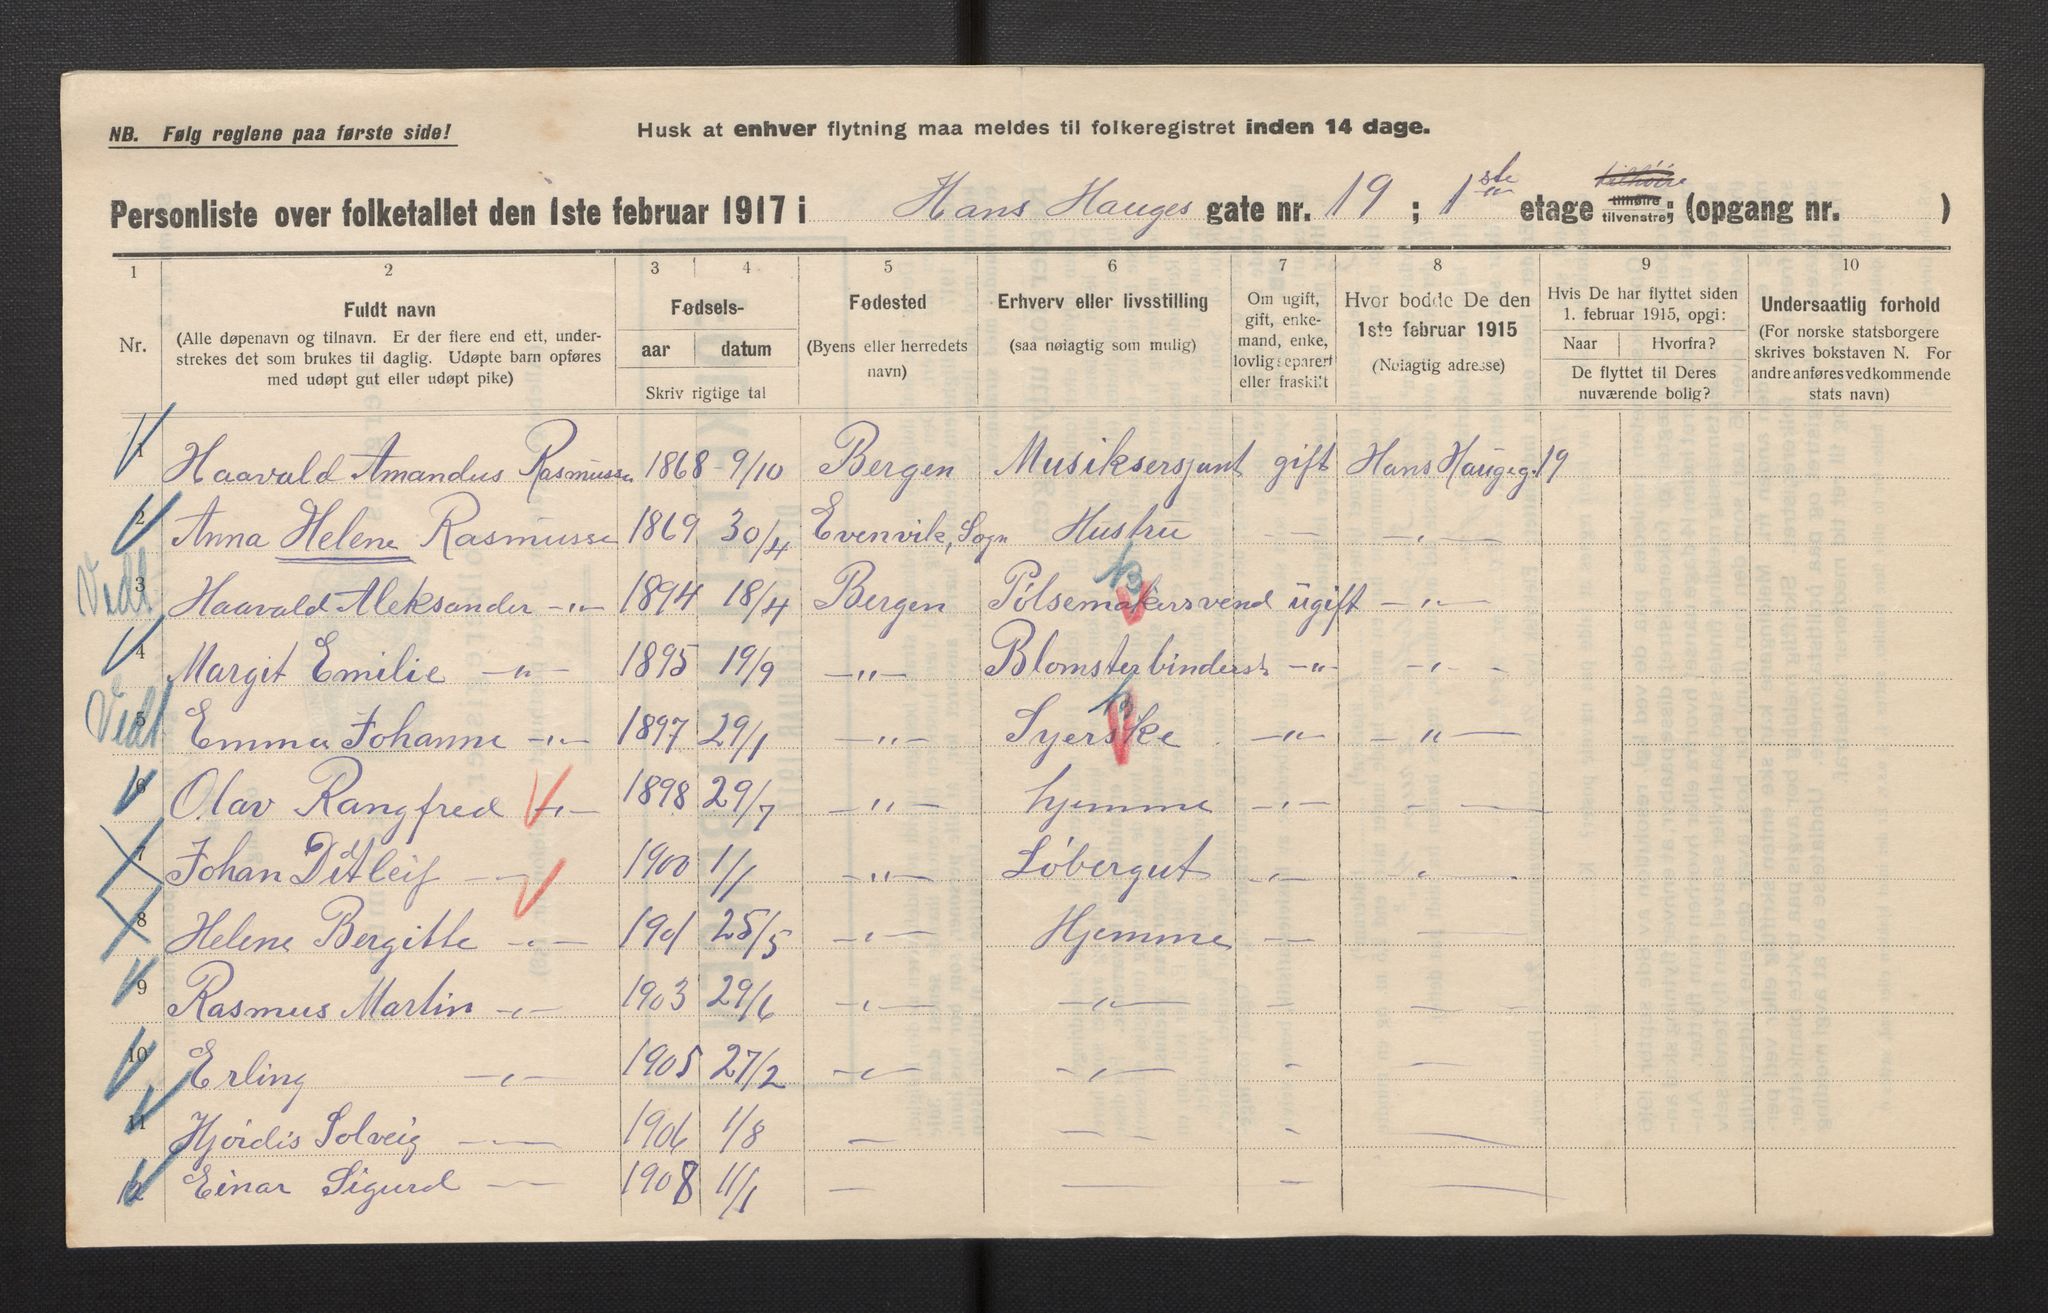 NB. Følg reglene paa første side!
Husk at enhver flytning maa meldes til folkeregistret inden 14 dage.
Personliste over folketallet den 1ste februar 1917 i Hans Hauges gate nr. 19 ; 1ste etage tilhøire tilvenstre; (opgang nr. )
1 2 3 4 5 6 7 8 9 10
Nr.
Fuldt navn
(Alle døpenavn og tilnavn. Er der flere end ett, under-
strekes det som brukes til daglig. Udøpte barn opføres
med udøpt gut eller udøpt pike)
Fødsels-
aar datum
Skriv rigtige tal
Fødested
(Byens eller herredets
navn)
Erhverv eller livsstilling
(saa nøiagtig som mulig)
Om ugift,
gift, enke-
mand, enke,
lovlig separert
eller fraskilt
Hvor bodde De den
1ste februar 1915
(Nøiagtig adresse)
Hvis De har flyttet siden
1. februar 1915, opgi:
Naar Hvorfra?
De flyttet til Deres
nuværende bolig?
Undersaatlig forhold
(For norske statsborgere
skrives bokstaven N. For
andre anføres vedkommende
stats navn)
1 Haavald Amandus Rasmussen 1868 9/10 Bergen Musiksersjant gift Hans Haugeg. 19
2 Anna Helene Rasmussen 1869 30/4 Evenvik, Sogn Hustru - -"-
Vedt. 3 Haavald Aleksander -"- 1894 18/4 Bergen Pølsemakersvend ugift -"-
4 Margit Emilie -"- 1895 19/9 -"- Blomsterbinderst. -"- -"-
Vedt. 5 Emma Johanne -"- 1897 29/1 -"- Syerske -"- -"-
6 Olav Rangfred -"- 1898 29/7 -"- hjemme -"- -"-
7 Johan Ditleif - 1900 1/1 -"- Løbergut -"- -"-
8 Helene Bergitte -"- 1901 25/5 -"- Hjemme - -
9 Rasmus Martin -"- 1903 29/6 -"- -"- - -
10 Erling -"- 1905 27/2 -"- -"- - -
11 Hjørdis Solveig - 1906 1/8 - - - -
12 Einar Sigurd - 1908 11/1 - - - -